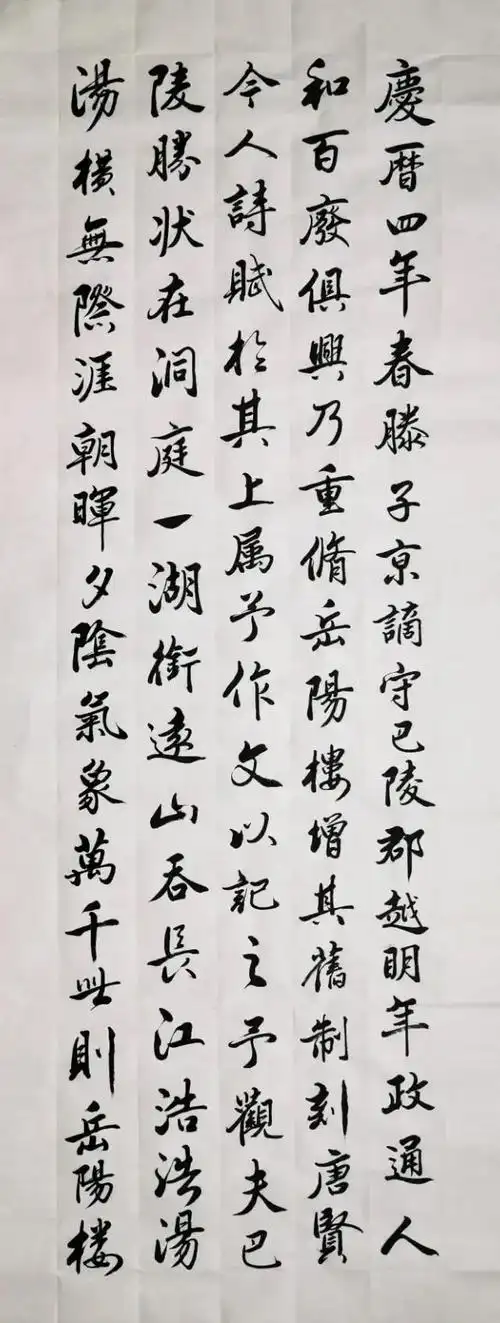 慶曆四年春滕子京謫守巴陵郡越明年政通人
和百廢俱興乃重脩岳陽樓增其舊制刻唐賢
今人詩賦於其上属予作文以記之予觀夫巴
陵勝状在洞庭一湖銜遠山吞長江浩浩湯
湯橫無際涯朝暉夕陰氣象萬千此則岳陽楼